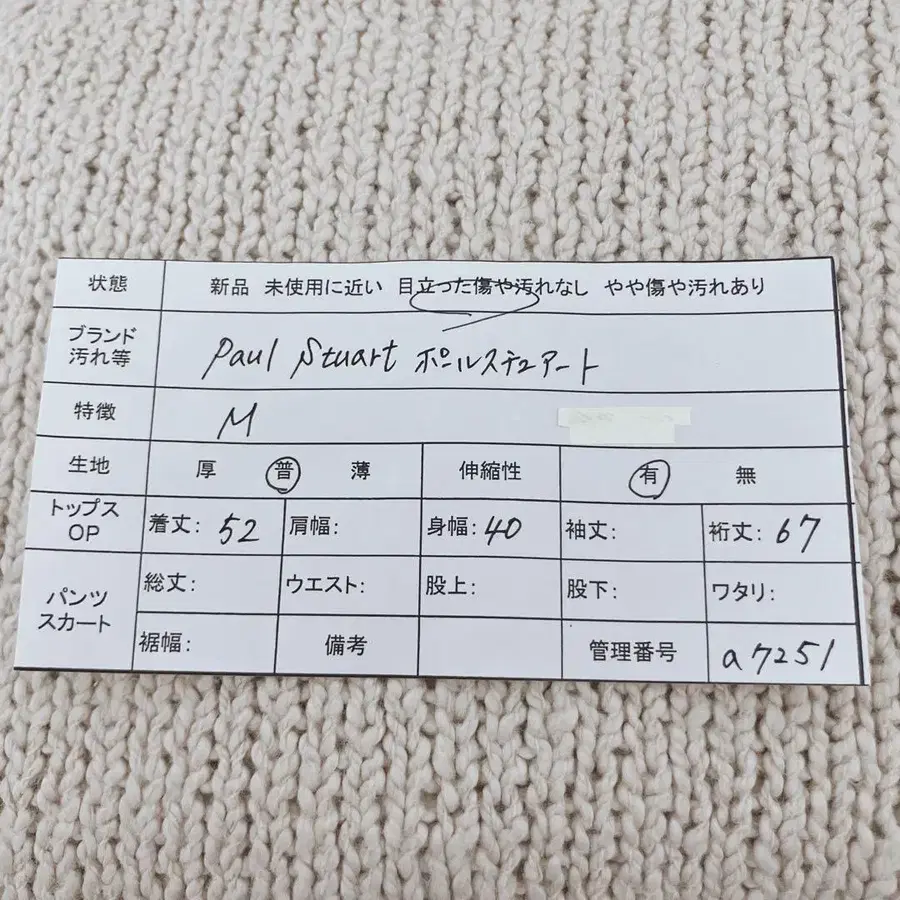 状態 新品 未使用に近い 目立った傷や汚れなし やや傷や汚れあり
ブランド
汚れ等 Paul Stuart ポールスチュアート
特徴 M
生地 厚 普 薄 伸縮性 有 無
トップス
OP 着丈: 52 肩幅: 身幅: 40 袖丈: 裄丈: 67
パンツ
スカート 総丈: ウエスト: 股上: 股下: ワタリ:
裾幅: 備考 管理番号 a7251